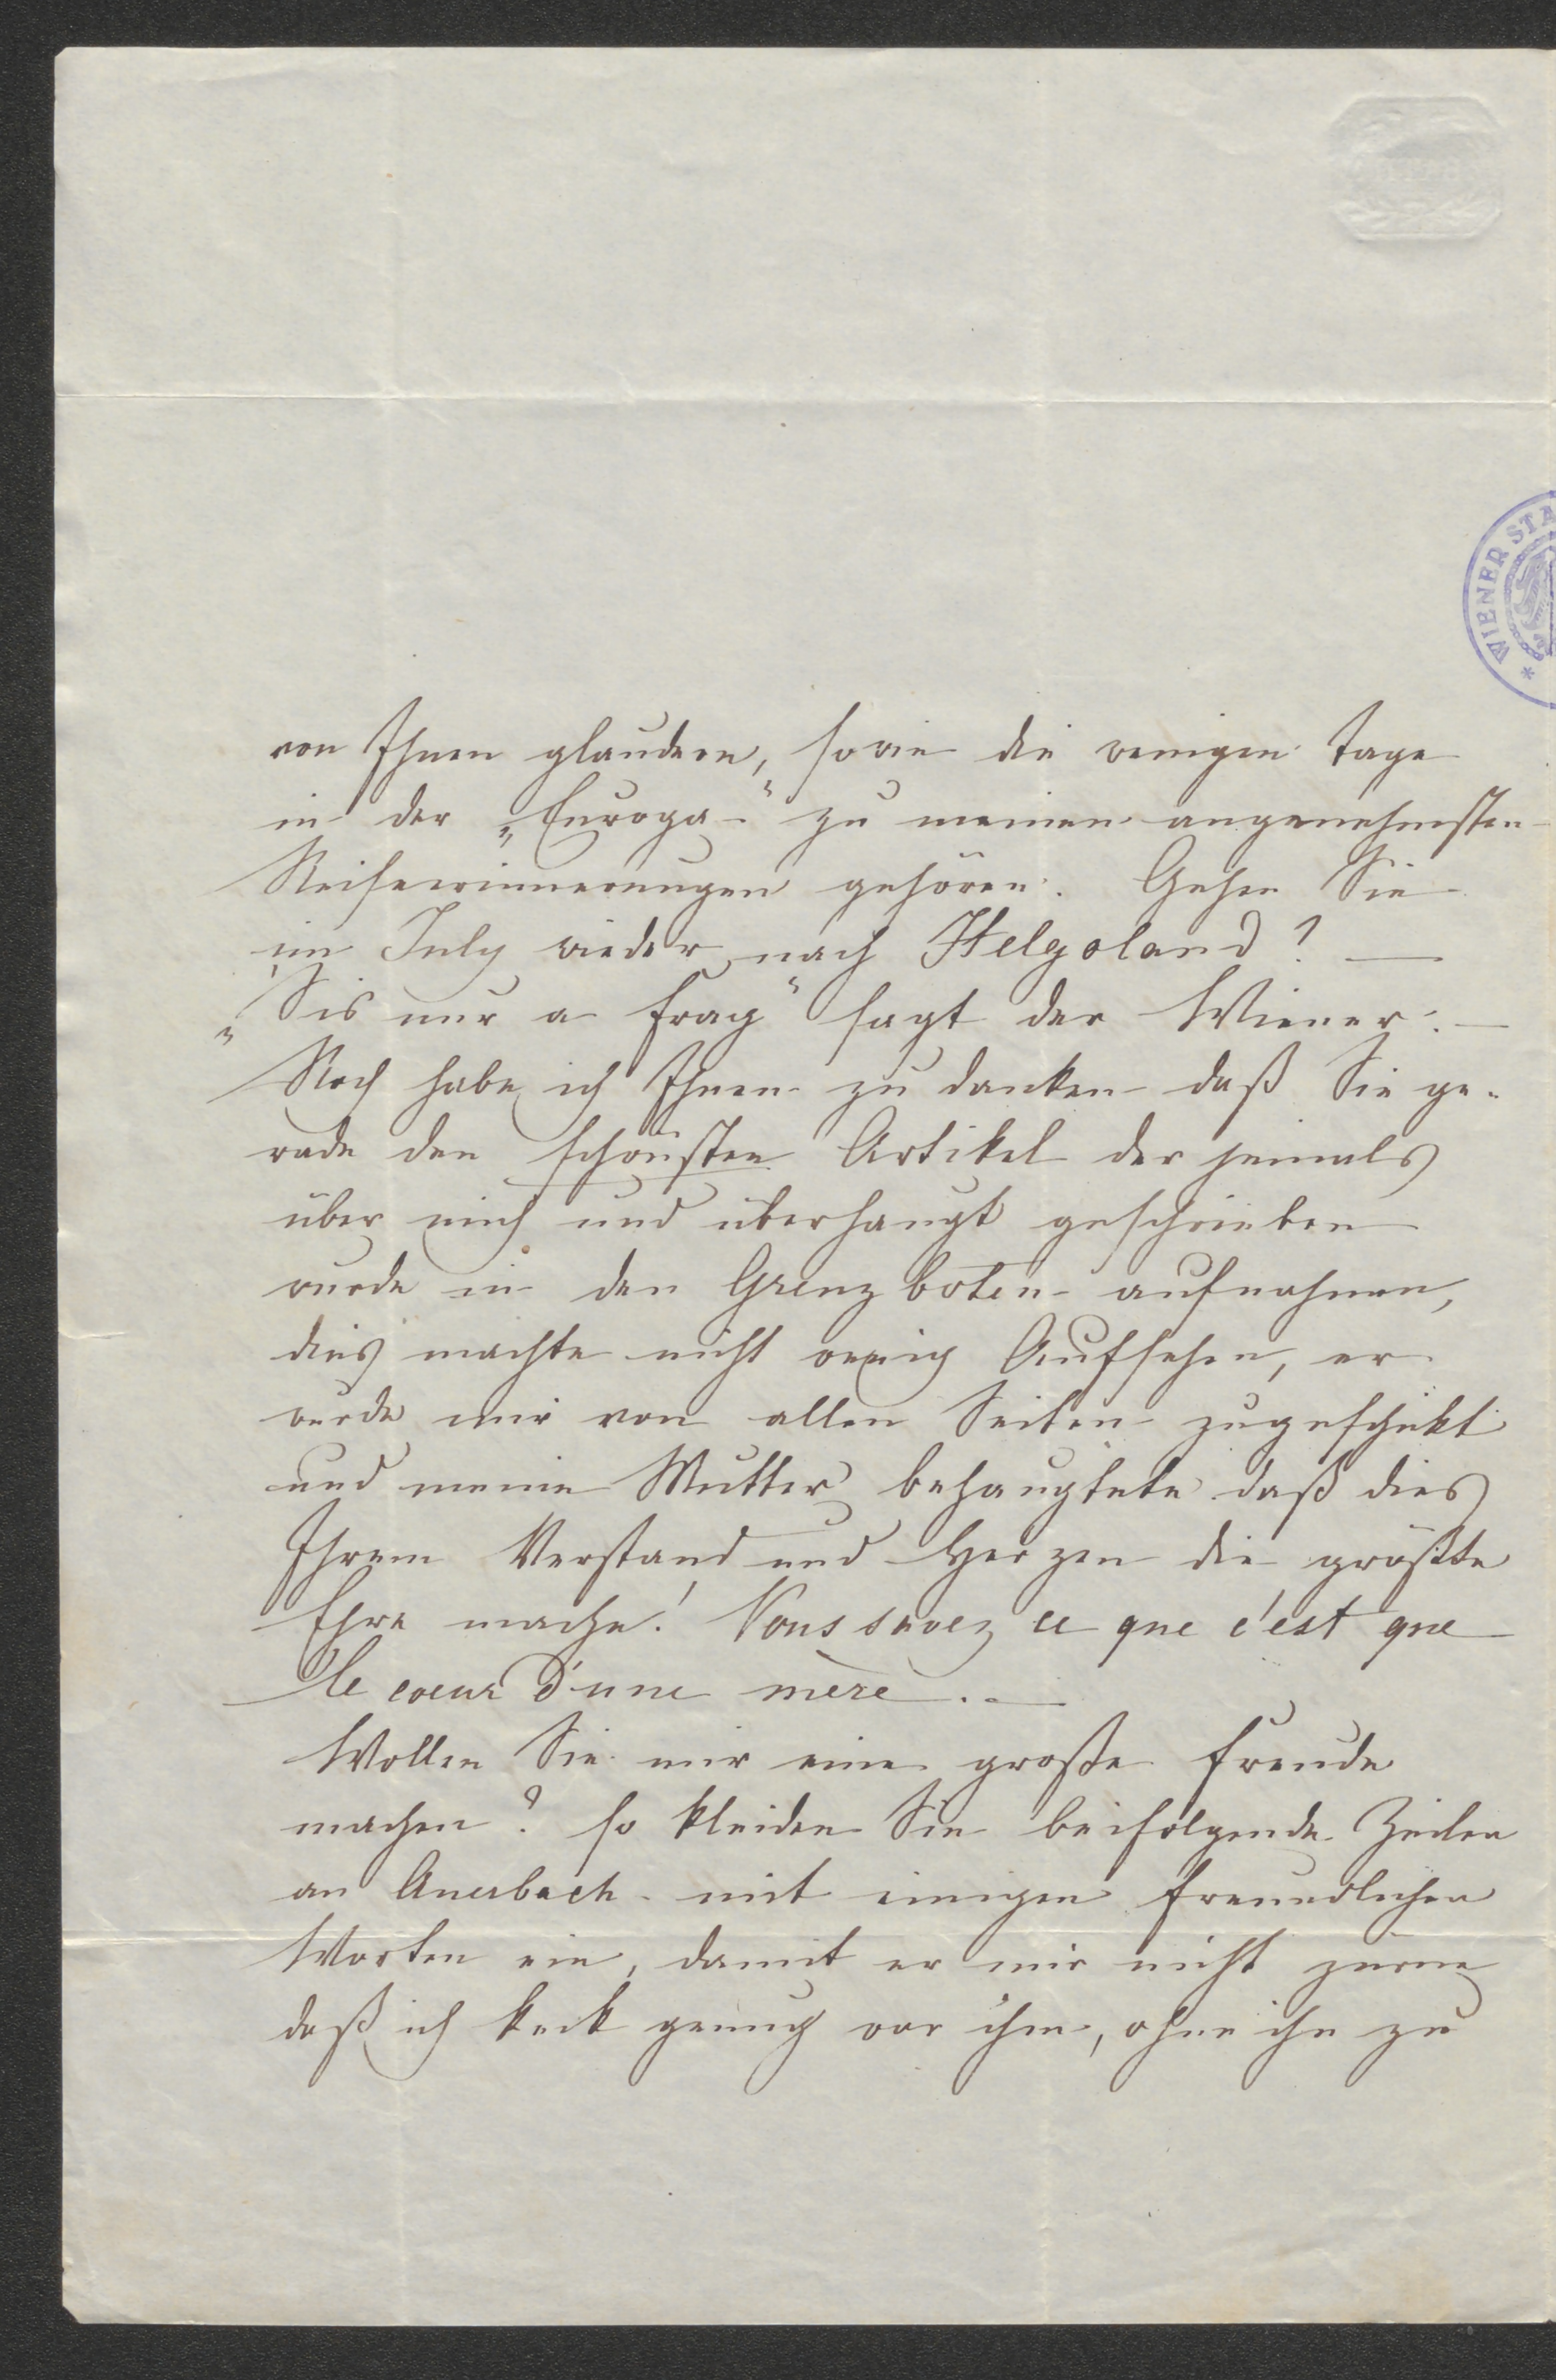 WIENER STA
von Ihnen plaudern, sowie die wenigen Tage
in der „Europa" zu meinen angenehmsten
Reiseerinnerungen gehören. Gehen Sie
im July wieder nach Helgoland? —
„'S is nur a Frag" sagt der Wiener. —
Noch habe ich Ihnen zu danken daß Sie ge-
rade den schönsten Artikel der jemals
über mich und überhaupt geschrieben
wurde in den Grenzboten aufnahmen,
dies machte nicht wenig Aufsehen, er
wurde mir von allen Seiten zugeschickt
und meine Mutter behauptete daß dies
Ihrem Verstand und Herzen die größte
Ehre mache! Vous savez ce que c'est que
le coeur d'une mère. —
Wollen Sie mir eine große Freude
machen? so kleiden Sie beifolgende Zeilen
an Auerbach mit einigen freundlichen
Worten ein, damit er mir nicht zürne
daß ich keck genug war ihm, ohne ihn zu